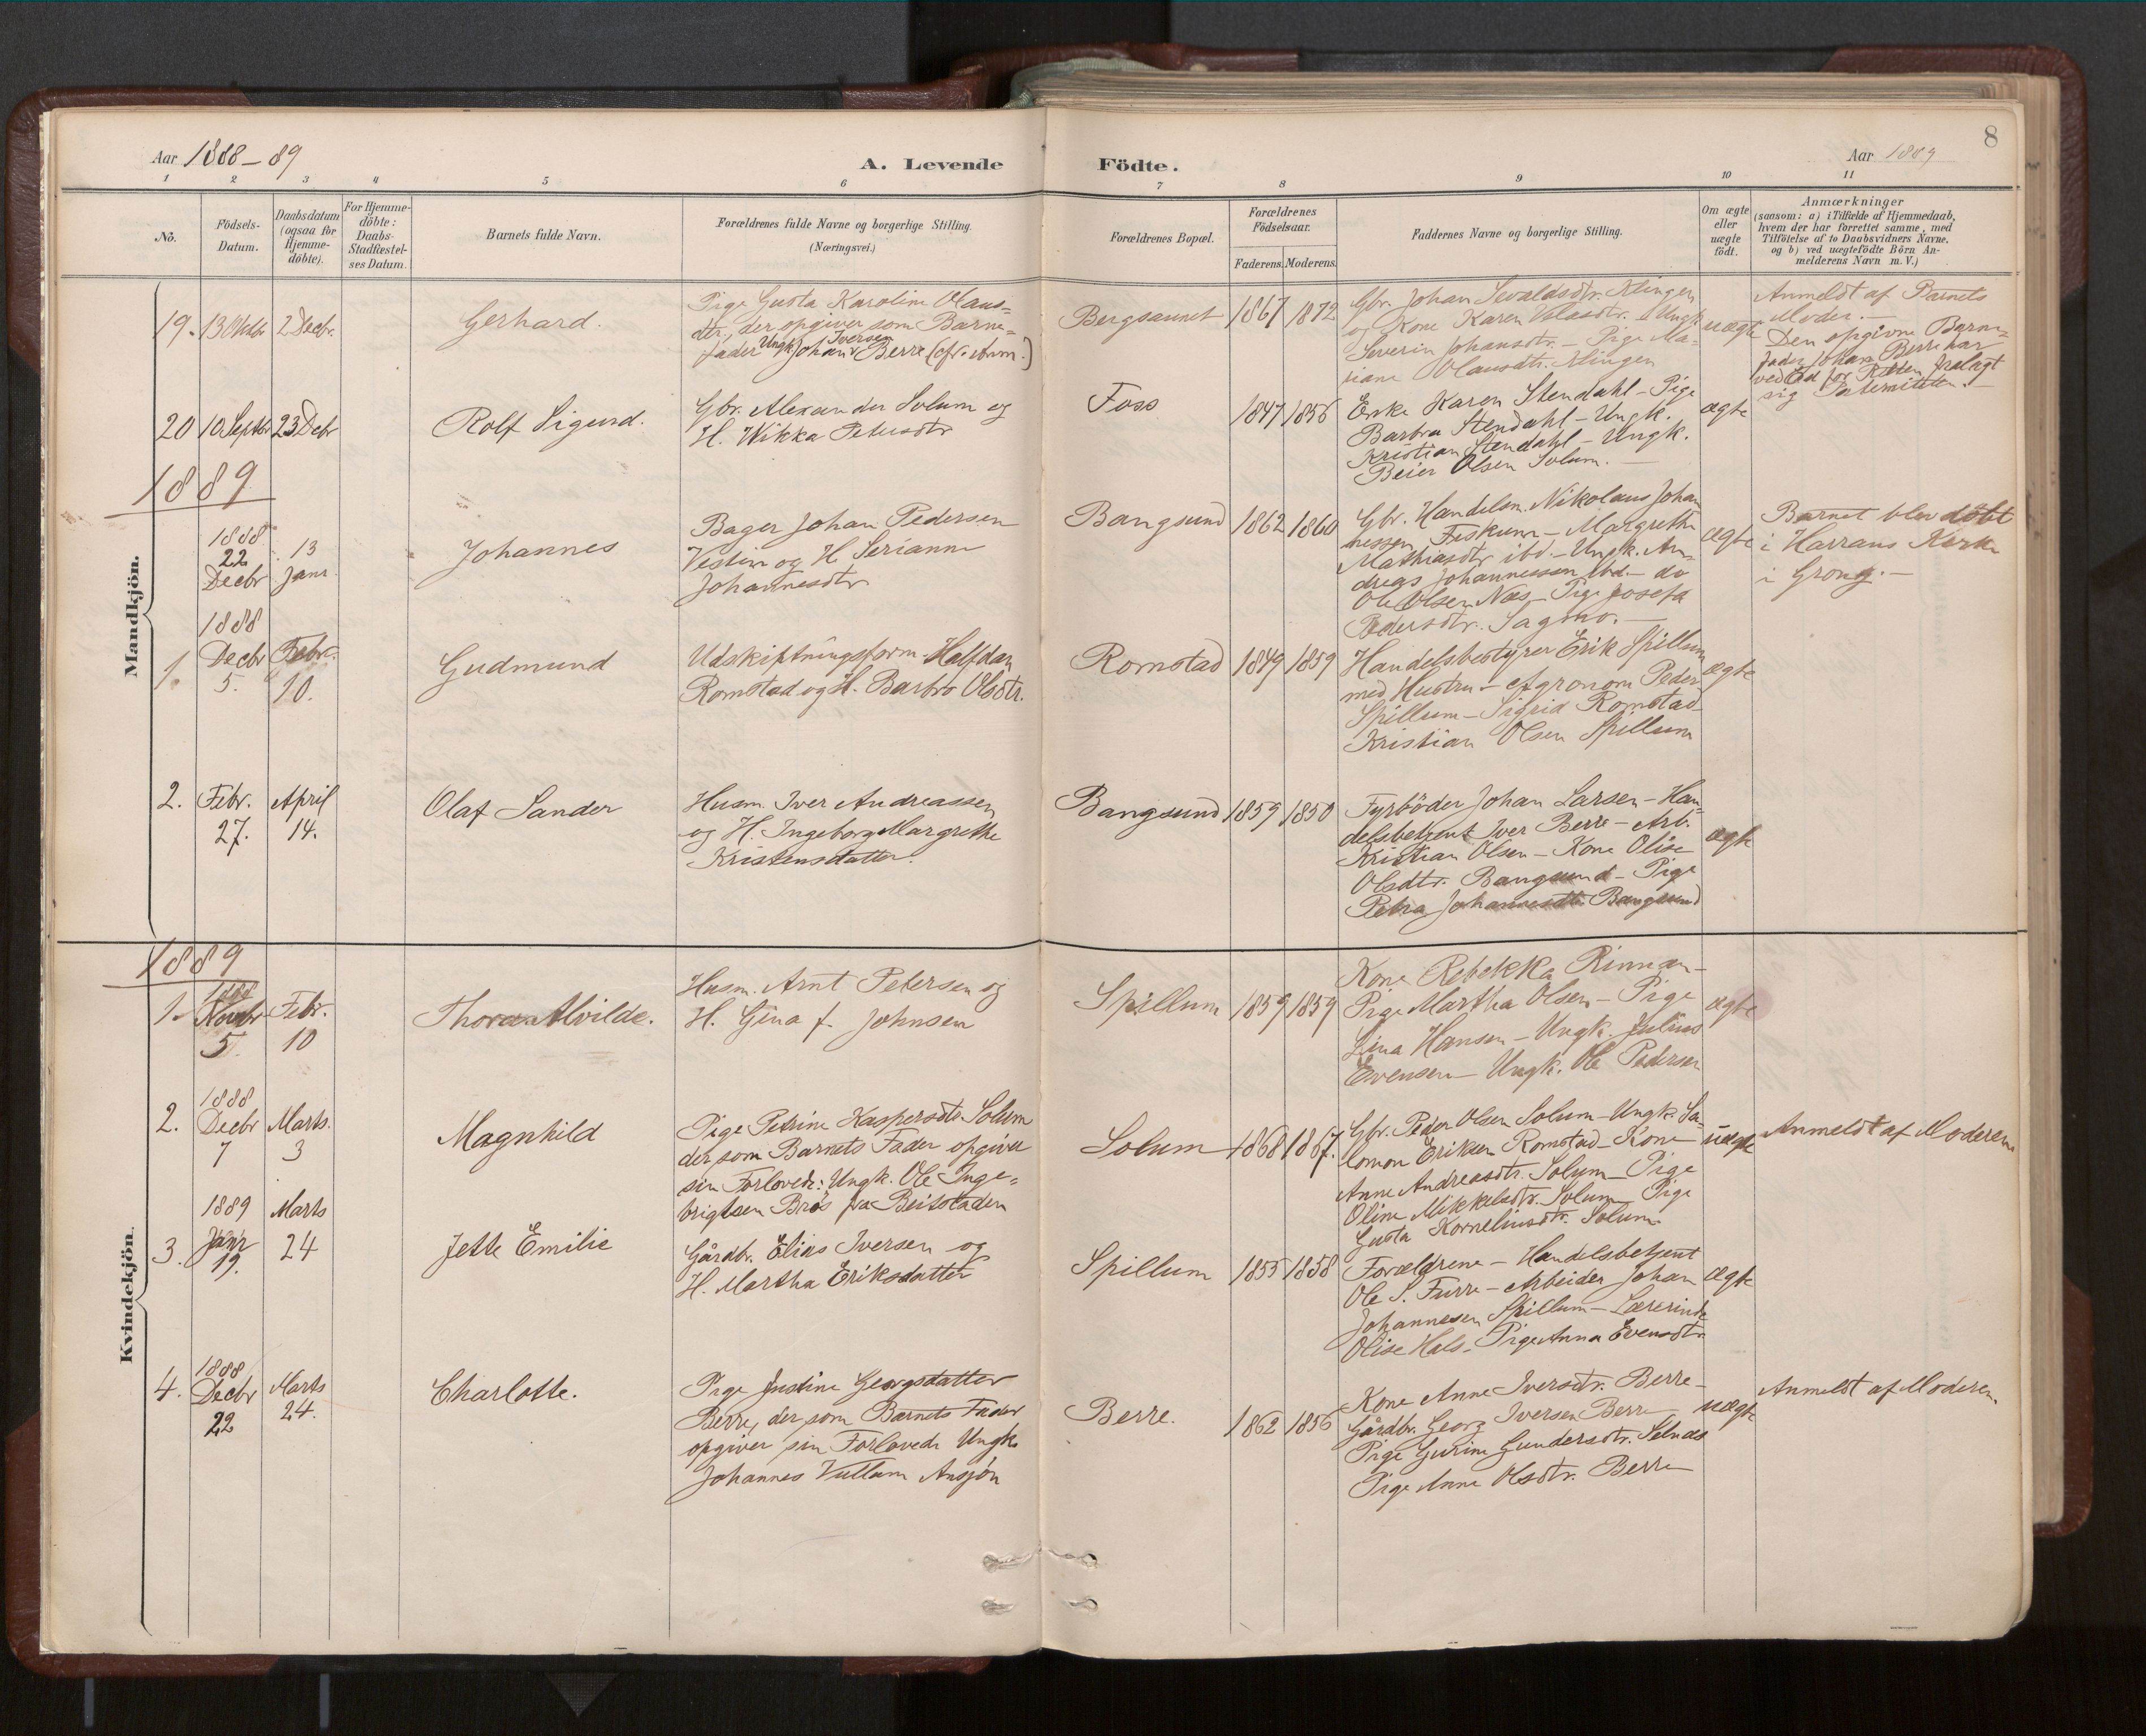 8
Aar 1888-89
A. Levende Födte.
Aar 1889
1 2 3 4 5 6 7 8 9 10 11
No.
Födsels-
Datum.
Daabsdatum
(ogsaa for
Hjemme-
döbte).
For Hjemme-
döbte:
Daabs-
Stadfæstel-
ses Datum.
Barnets fulde Navn.
Forældrenes fulde Navne og borgerlige Stilling.
(Næringsvei.)
Forældrenes Bopæl.
Forældrenes
Födselsaar.
Faderens. Moderens.
Faddernes Navne og borgerlige Stilling.
Om ægte
eller
uægte
födt.
Anmærkninger
(saasom: a) i Tilfælde af Hjemmedaab,
hvem der har forrettet samme, med
Tilföielse af to Daabsvidners Navne,
og b) ved uægtefödte Börn An-
melderens Navn m. V.)
Mandkjön.
19. 13 Oktbr 2 Decbr.
Gerhard.
Pige Gusta Karoline Olaus-
dtr., der opgiver som Barne-
fader Ungk. Johan Iversen Berre (cfr. Anm.)
Bergsaunet
1867 1872
Gbr. Johan Sevaldsdtr. Klingen
og Kone Karen - Ungk.
Severin Johansdtr. - Pige Ma-
riane Olausdtr. Klingen
uægte
Anmeldt af Barnets
Moder. -
Den opgivne Barne-
fader Johan Berre har
ved Ed for Retten fralagt
sig Paterniteten. -
20 10 Septbr 23 Debr
Rolf Sigurd.
Gbr. Alexander Solum og
H. Wikka Petersdtr
Foss
1847 1856
Enke Karen Stendahl - Pige
Barbra Stendahl - Ungk.
Kristian Stendahl - Ungk.
Beier Olsen Solum. -
ægte
1889
1888
22
Decbr
13
Janr.
Johannes
Bager Johan Pedersen
Vestin og H Serianne
Johannesdtr
Bangsund
1862 1860
Gbr. Handelsm. Nikolaus Johan
nessen Fiskum - Margrethe
Mathiasdtr ibd. - Ungk. An-
dreas Johannessen ibd. - do
Ole Olsen Næs - Pige Josefa
Pedersdtr. Sagmo. -
ægte
Barnet blev döbt
i Harrans Kirke
i Grong. -
1.
1888
Decbr
5.
Febr.
10.
Gudmund
Udskiftningsform. Halfdan
Romstad og H. Barbro Olsdtr.
Romstad
1849 1859
Handelsbestyrer Erik Spillum
med Hustru - Agronom Peder
Spillum - Sigrid Romstad
Kristian Olsen Spillum
ægte
2.
Febr.
27.
April
14.
Olaf Sander
Husm. Iver Andreassen
og H. Ingeborg Margrethe
Kristensdatter.
Bangsund
1859 1850
Fyrböder Johan Larsen - Han-
delsbetjent Iver Berre - Arb.
Kristian Olsen - Kone Olise
Olsdtr. Bangsund - Pige
Petra Johannesdtr Bangsund
ægte
Kvindekjön.
1889
1.
1888
Novbr
5.
Febr.
10
Thora Alvilde.
Husm. Arnt Petersen og
H. Gina f. Johnsen
Spillum
1859 1859
Kone Rebekka Rinnan -
Pige Martha Olsen - Pige
Lina Hansen - Ungk. Julius
Evensen - Ungk. Ole Pedersen
ægte
2.
1888
Decbr
7
Marts.
3
Magnhild
Pige Petrine Kaspersdtr. Solum
der som Barnets Fader opgiver
sin Forlovede: Ungk. Ole Inge-
brigtsen Brøs fra Beitstaden
Solum
1868 1867.
Gbr. Peder Olsen Solum - Ungk. Sa-
lomon Eriksen Romstad - Kone
Anne Andreasdtr. Solum - Pige
Oline Mikkelsdtr. Solum Pige
Gusta Korneliusdtr. Solum.
uægte
Anmeldt af Moderen
3.
1889
Janr
19.
Marts
24
Jette Emilie
Gårdbr. Elias Iversen og
H. Martha Eriksdatter
Spillum
1855 1858
Forældrene - Handelsbetjent
Ole S. Furre - Arbeider Johan
Johannesen Spillum - Lærerinde
Olise Hals - Pige Anna Evensdtr.
ægte
4.
1888
Decbr
22
Marts
24.
Charlotte.
Pige Justine Georgsdatter
Berre, der som Barnets Fader
opgiver sin Forlovede Ungk.
Johannes Vullum Ansjön
Berre.
1862 1856
Kone Anne Iversdtr. Berre -
Gårdbr. Georg Iversen Berre
Pige Gurine Gundersdtr. Selnæs
Pige Anne Olsdtr. Berre
uægte
Anmeldt af Moderen.